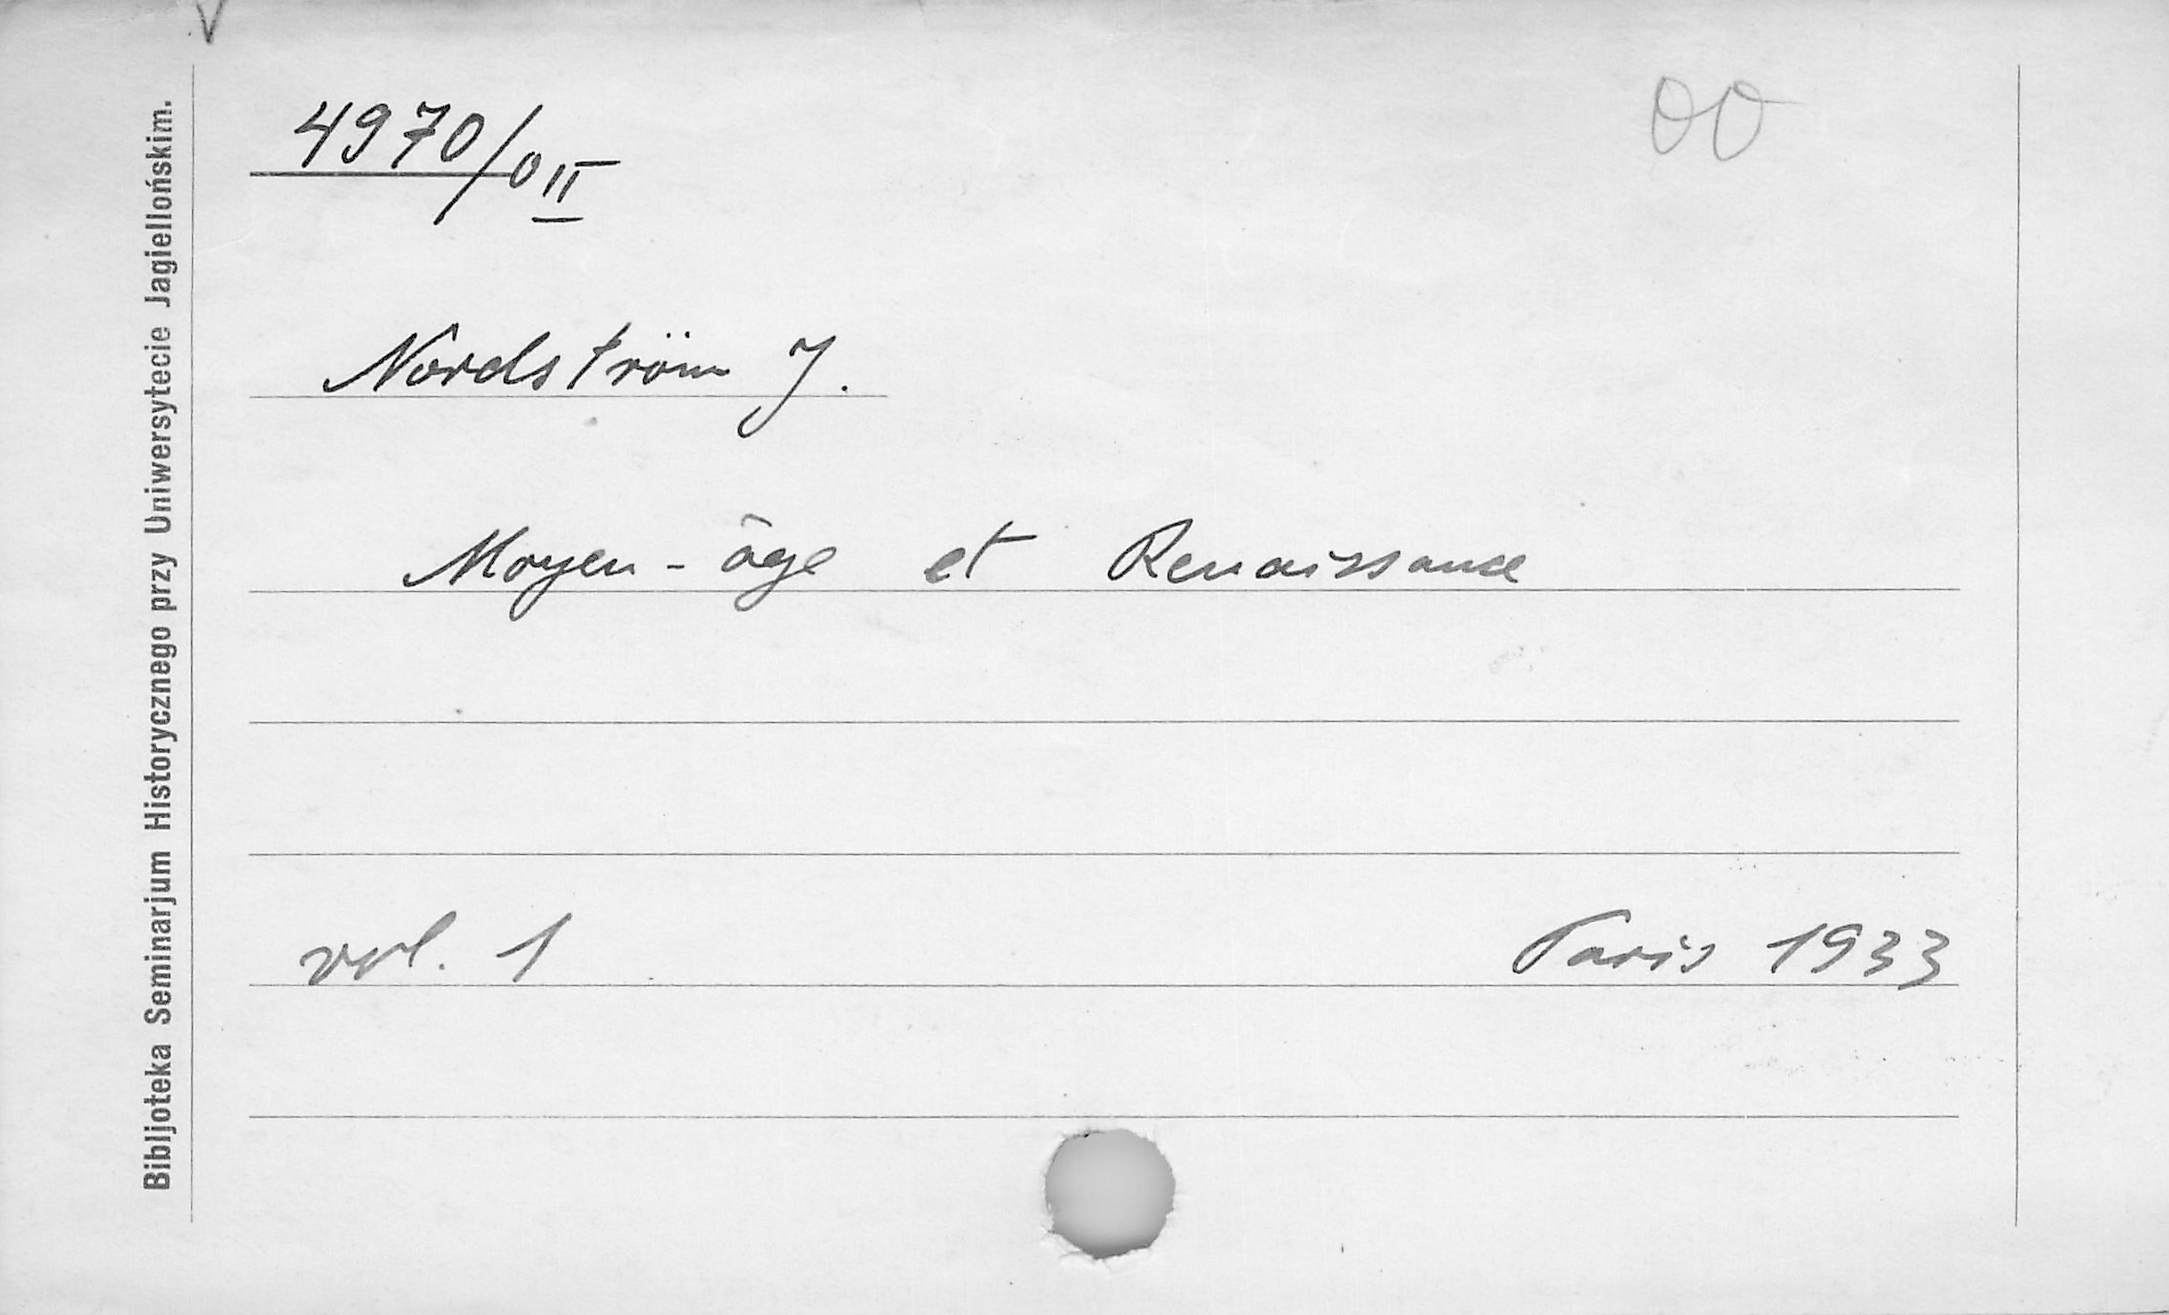 Bibljoteka Seminarjum Historycznego przy Uniwersytecie Jagiellońskim.
4970/0 II
00
Nordström J.
Moyen-âge et Renaissance
vol. 1
Paris 1933